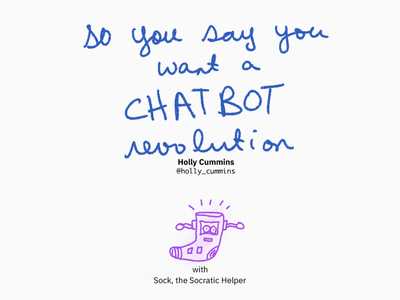 so you say you
want a
CHATBOT
revolution
Holly Cummins
@holly_cummins
with
Sock, the Socratic Helper